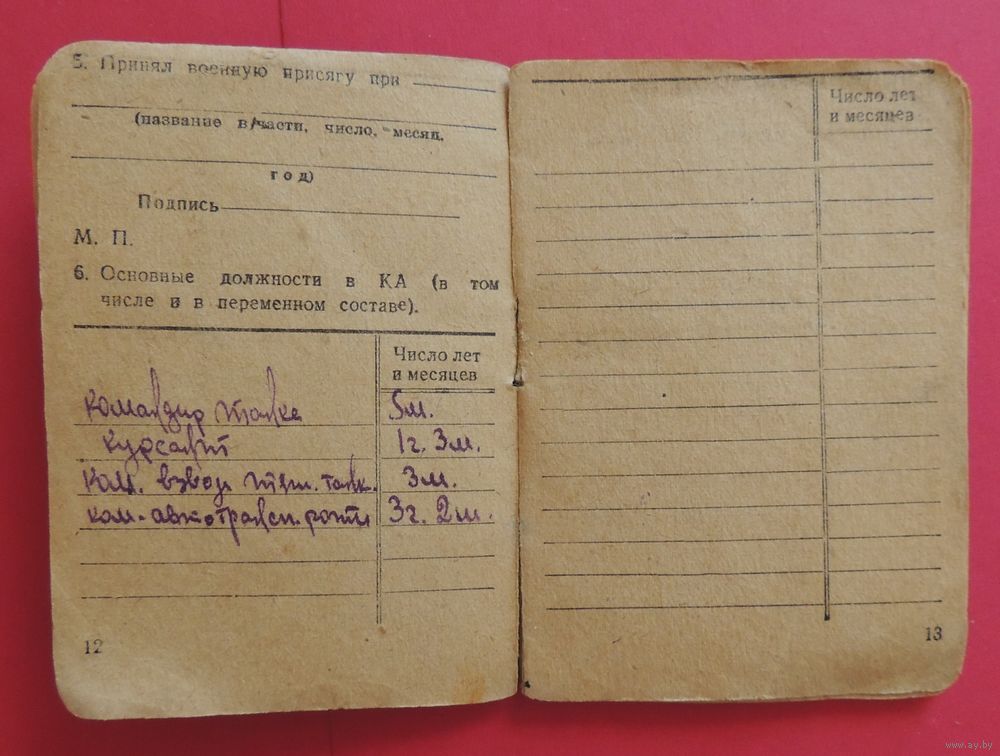 5. Принял военную присягу при
(название в/части, число, месяц,
год)
Подпись
М. П.
6. Основные должности в КА (в том
числе и в переменном составе).
Число лет
и месяцев
командир танка 5м.
курсант 1г. 3м.
ком. взвод тяж. танк. 3м.
ком. автотрансп. роты 3г. 2м.
12
Число лет
и месяцев
13
www.ay.by